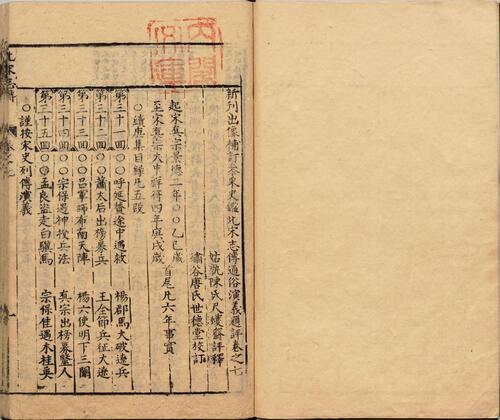 內閣文庫
新刊出像補訂參采史鑑北宋志傳通俗演義題評卷之七
姑孰陳氏尺蠖齋評釋
繡谷唐氏世德堂校訂
起宋真宗景德二年○○乙巳歲
至宋真宗大中祥符四年庚戌歲
首尾凡六年事實
○續慶集目錄凡五段
第三十一回○○呼延贊途中遇救 楊郡馬大破遼兵
第三十二回○○蕭太后出榜募兵 王全節兵征大遼
第三十三回○○呂軍師布南天陣 楊六使明下三關
第三十四回○○宗保遇神授兵法 真宗出榜募醫人
第三十五回○○孟良盜走白驥馬 宗保佳遇木桂英
○謹按宋史列傳演義